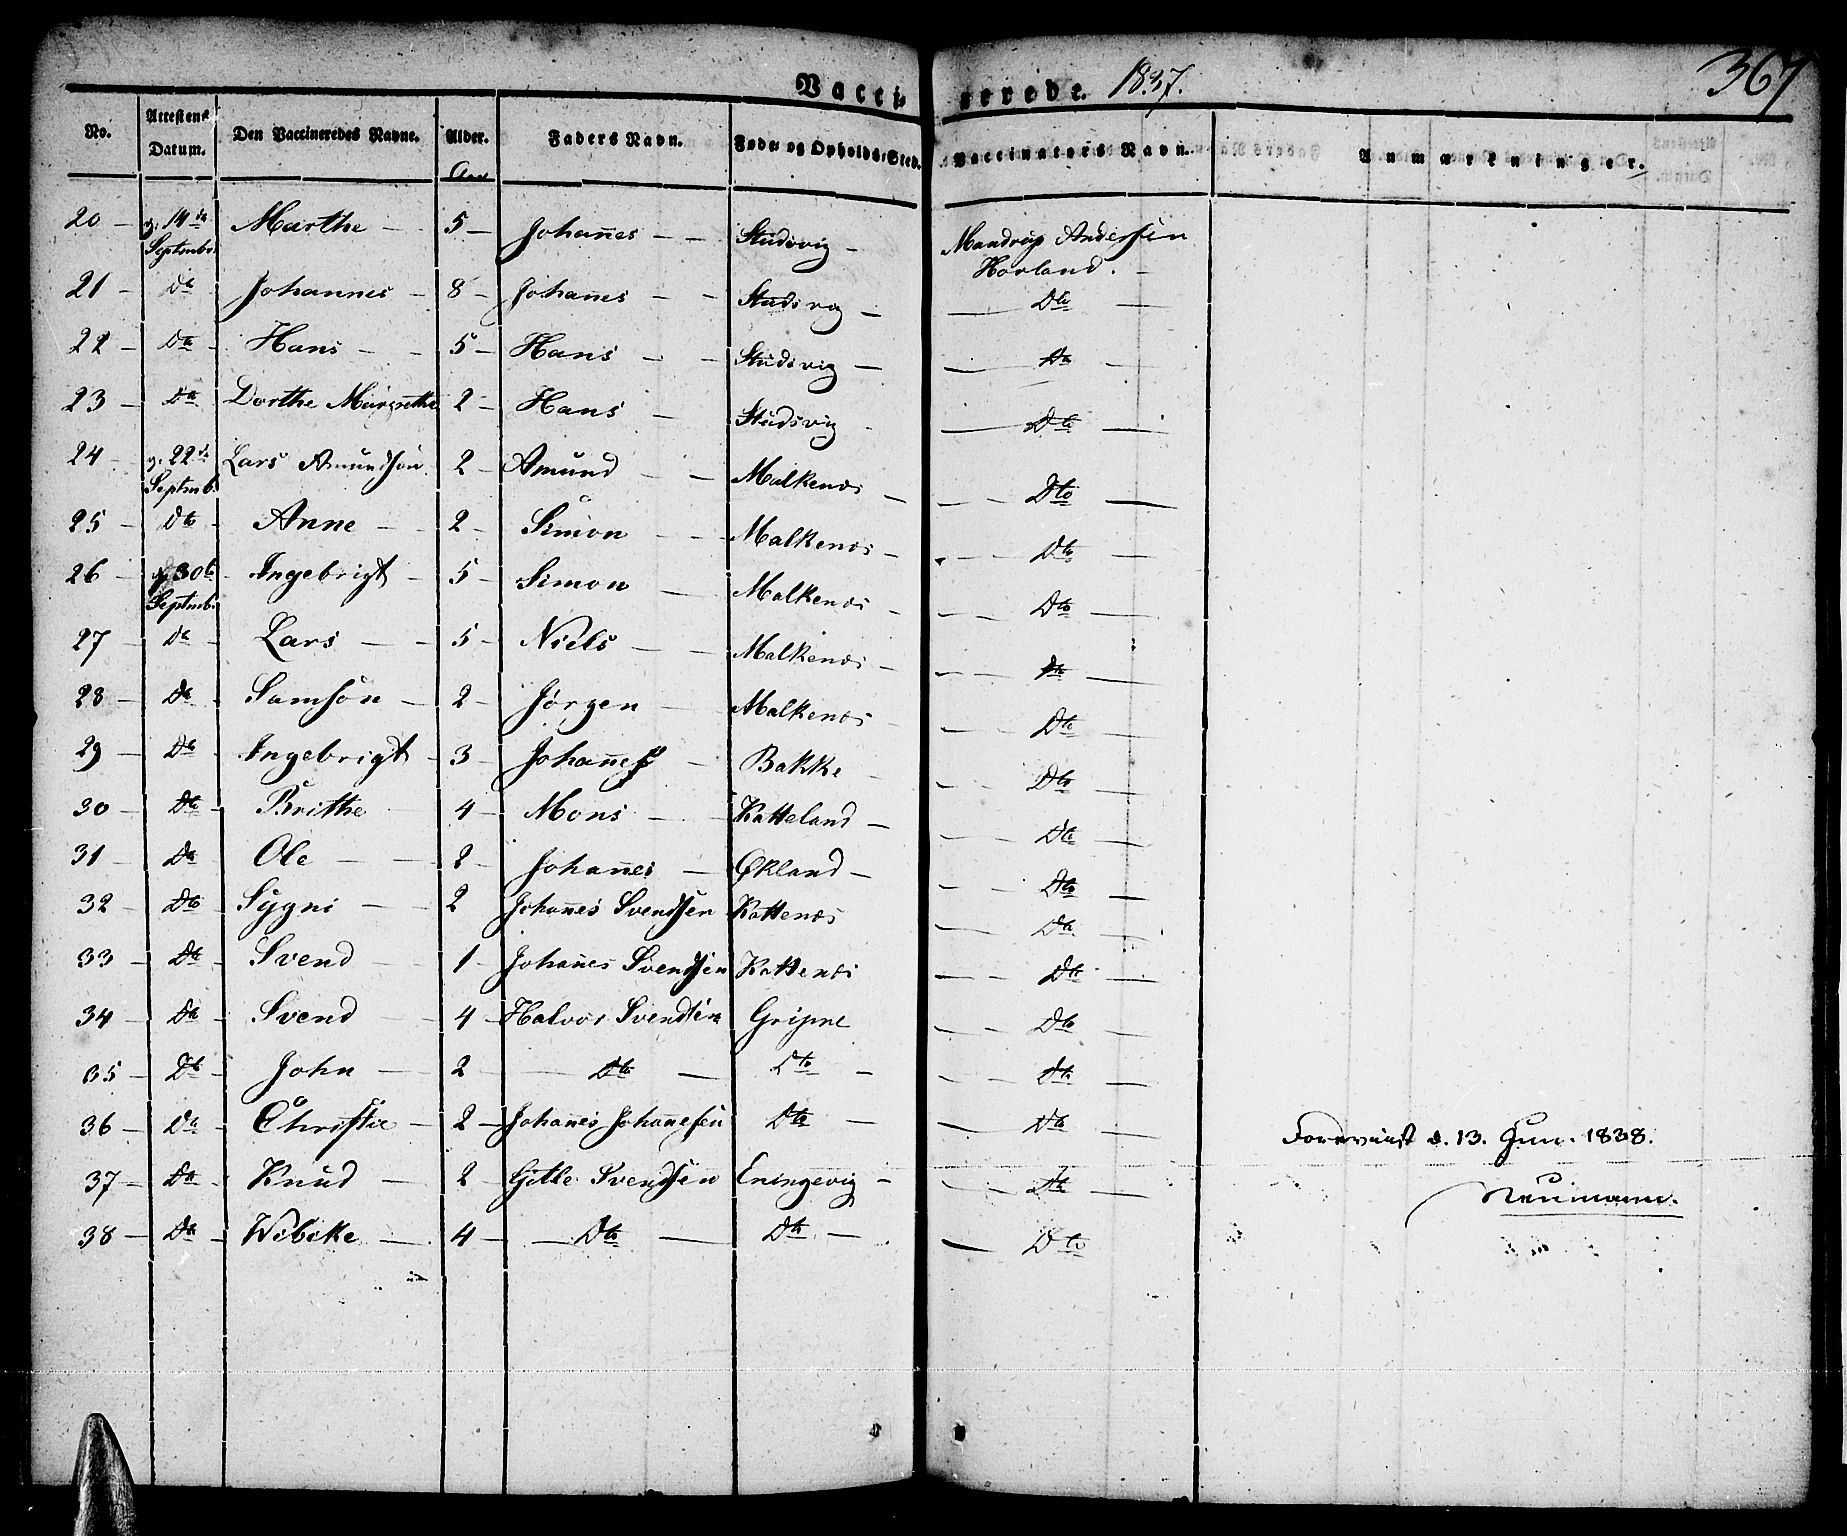 367
Vacci- nerede. 1837.
No. Attestens Datum. Den Vaccineredes Navne. Alder. Faders Navn. Føde- og Opholds-Sted. Vaccinators Navn. Anmærkninger.
Aar
20 - 14de Septmbr. Marthe - 5 - Johan̄es - - Studsvig - Mandrup Andersen Horland. -
21 - Do Johannes - 8 - Johan̄es - - Studsvig - - Dto -
22 - Do - Hans - - 5 - Hans - - Studsvig - - Do -
23 - Do Dorthe Margrethe 2 - Hans - Studsvig - - Dto -
24 - 22de Septmb. Lars Amundsøn 2 - Amund - - Malkenæs - - - Dto -
25 - Dto - Anne - - 2 - Simon - - - Malkenæs - - - Dto -
26 - 30te Septmb. - Ingebrigt - 5 - Simon - Malkenæs - - - Dto -
27 - Do - Lars - - 5 - Niels - - Malkenæs - - - Do -
28 - Do - Samsøn - 2 - Jørgen - Malkenæs - - - Dto -
29 - Do - Ingebrigt - 3 - Johan̄es - Bakke - - - Dto -
30 - Do - Brithe 4 - Mons - - Katteland - - - Dto -
31 - Do - Ole - - 2 - Johan̄es - Økland - - - Dto -
32 - Do - Sygni - - 2 Johan̄es Svendsen Kattenæs - - Do
33 - Do - Svend - 1 - Johan̄es Svendsen Kattenæs - - Do -
34 - Do - Svend - 4 - Halvor Svendsen Gripne - - Do -
35 - Do - John - 2 - Dto - Dto - - - Do -
36 - Do - Christie - 2 - Johan̄es Johan̄esen Dto - - - Do - Foreviist d. 13. Jun. 1838.
37 - Do - Knud - 2 - Gitle Svendsen Eningevig - - - Do - Neumann.
38 - Do - Wibeke - 4 - - Dto - Dto - - Dto